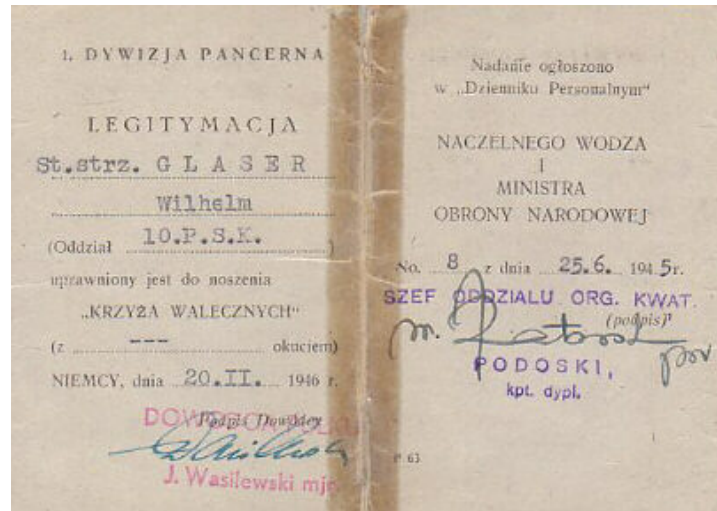 1. DYWIZJA PANCERNA
LEGITYMACJA
St.strz. G L A S E R
Wilhelm
(Oddział 10.P.S.K. )
uprawniony jest do noszenia
„KRZYŻA WALECZNYCH"
(z --- okuciem)
NIEMCY, dnia 20.II. 1946 r.
Podpis Dowódcy
J. Wasilewski mjr.
Nadanie ogłoszono
w „Dzienniku Personalnym"
NACZELNEGO WODZA
I
MINISTRA
OBRONY NARODOWEJ
No. 8 z dnia 25.6. 1945r.
SZEF ODDZIALU ORG. KWAT.
(podpis)
m. por
PODOSKI,
kpt. dypl.
P 63